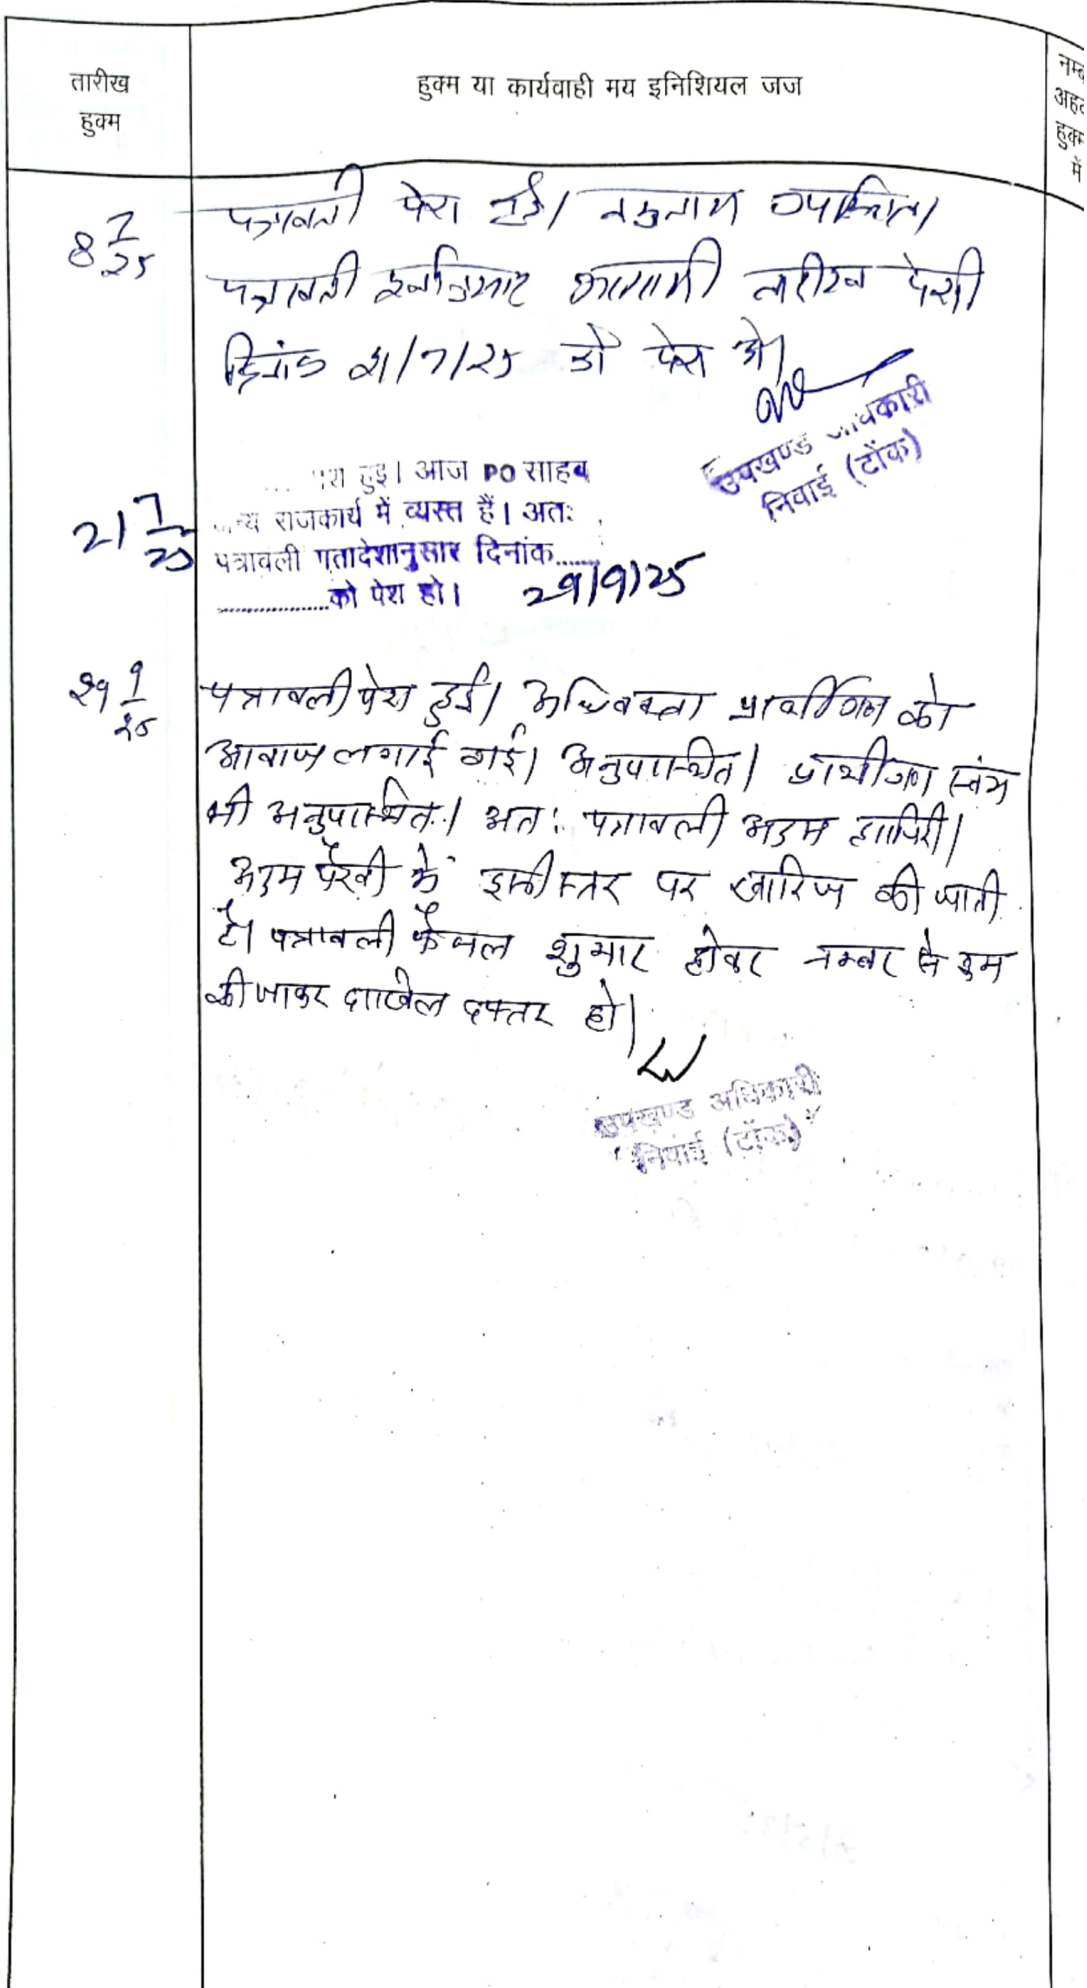 तारीख
हुक्म
हुक्म या कार्यवाही मय इनिशियल जज
8 7/25
पत्रावली पेश हुई। उपस्थित।
पत्रावली आगामी तारीख पेशी
दिनांक 21/7/25 को पेश हो।
उपखण्ड अधिकारी
निवाई (टोंक)
21 7/25
हुई। आज PO साहब
राजकार्य में व्यस्त हैं। अतः
पत्रावली गतादेशानुसार दिनांक......
..................को पेश हो। 29/9/25
29 9/25
पत्रावली पेश हुई। अधिवक्ता प्रार्थीगण को
आवाज लगाई गई। अनुपस्थित। प्रार्थीगण स्वंय
भी अनुपस्थित। अतः पत्रावली अदम हाजिरी।
अदम पैरवी में इसी स्तर पर खारिज की जाती
है। पत्रावली फैसल शुमार होकर नम्बर से कम
की जाकर दाखिल दफ्तर हो।
उपखण्ड अधिकारी
निवाई (टोंक)